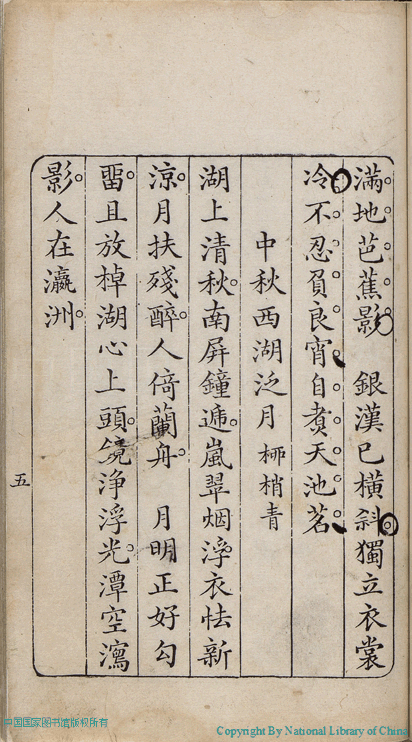 滿地芭蕉影　銀漢已橫斜獨立衣裳
冷不忍負良宵自煮天池茗
中秋西湖泛月　柳梢青
湖上清秋南屏鐘遞嵐翠烟浮衣怯新
涼月扶殘醉人倚蘭舟　月明正好勾
畱且放棹湖心上頭鏡淨浮光潭空瀉
影人在瀛洲
五
中国国家图书馆版权所有
Copyright By National Library of China